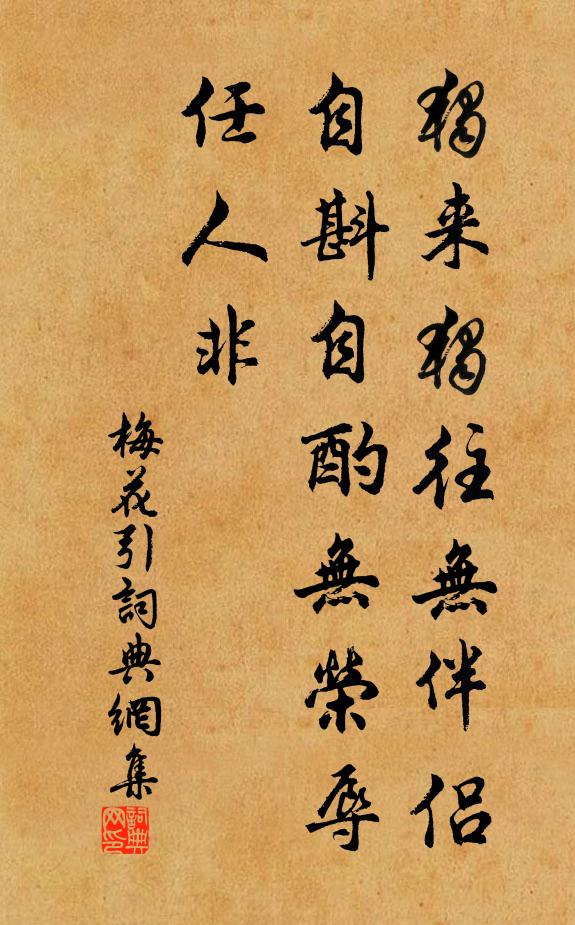 獨来獨往無伴侣
自斟自酌無榮辱
任人非
梅花引詞典網集
詞典网印